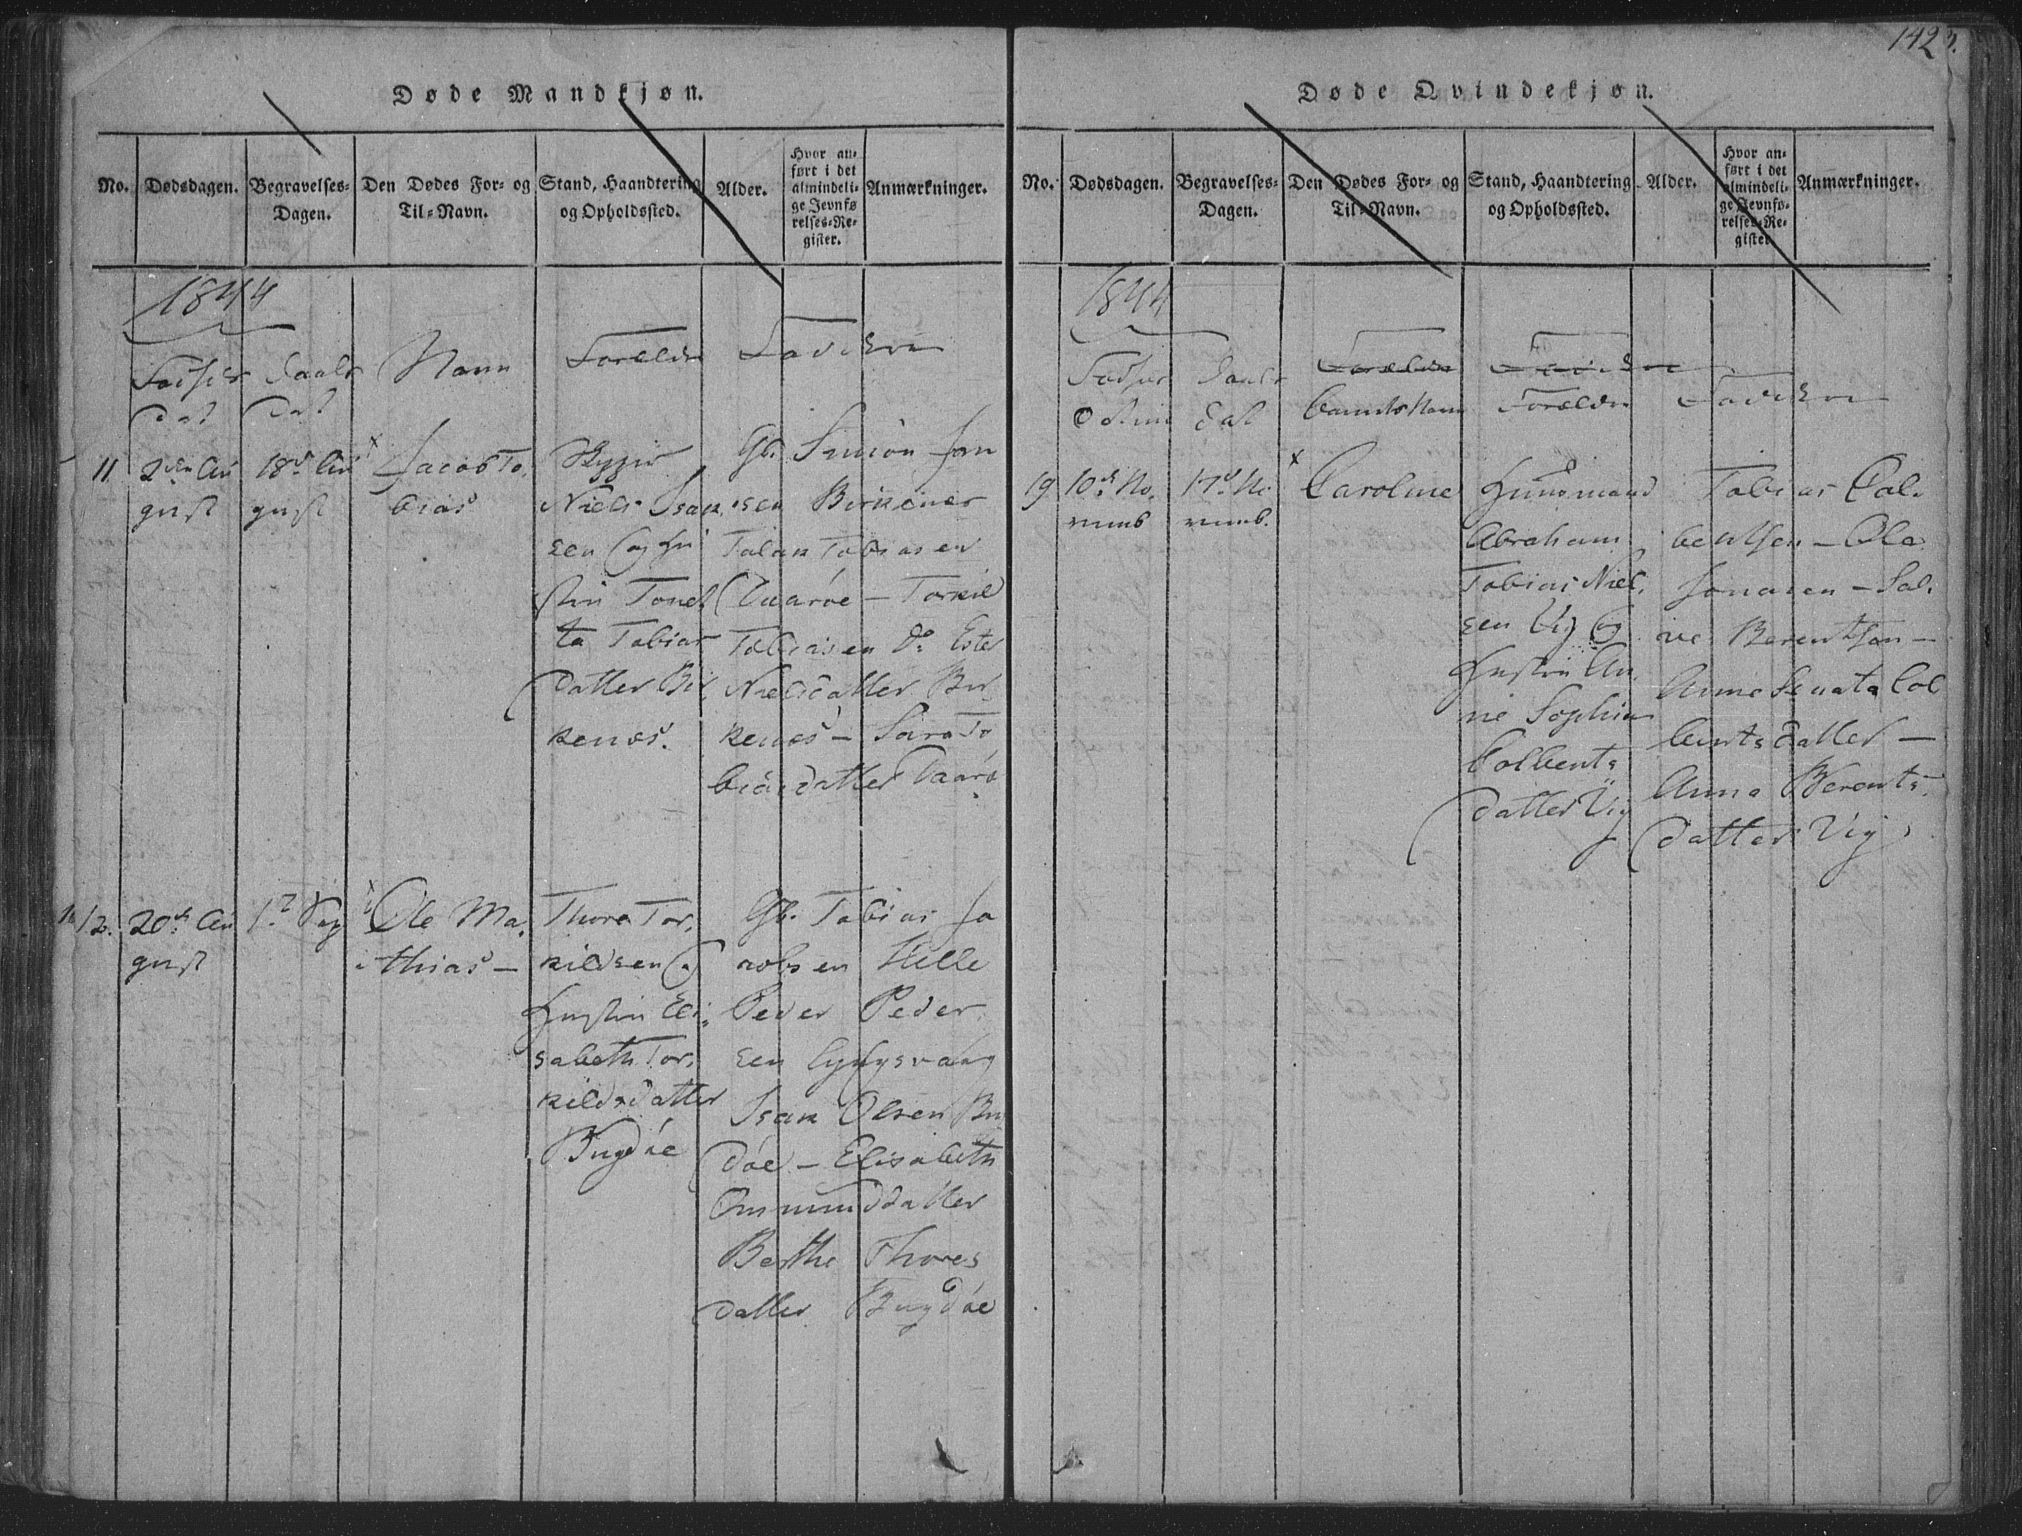 142
Døde Mandkjøn.
No.
Dødsdagen.
Begravelses-
Dagen.
Den Dødes For- og
Til-Navn.
Stand, Haandtering
og Opholdssted.
Alder.
Hvor an-
ført i det
almindeli-
ge Jevnfø
relses-Re-
gister.
Anmærkninger.
1844
Navn
Forældre
Faddere
11
2den Au
gust
18d Au
gust
Jacob To
bias
Niels Isak
sen og
Tonet
ta Tobias
datter Bir
kenæs.
Gb. Simon Jan
sen Birkenær
Tobiasen
Torkil
Tobiasen do Ester
Nielsdatter Bir
kenæs - Sara To
biasdatter
12.
20d Au
gust
1d Sep
Ole Ma
thias -
Thore Tor
kildsen
Hustru Eli
sabeth Tor
kildsdatter
Bugdøe
Gb. Tobias Ja
cobsen Helle
Peder Peder
sen Lyngsvaag
Isak Olsen Bu
døe - Elisabeth
Ommundsdatter
Berthe Thores
datter Bugdøe
Døde Qvindekjøn.
No.
Dødsdagen.
Begravelses-
Dagen.
Den Dødes For- og
Til-Navn.
Stand, Haandtering
og Opholdssted.
Alder.
Hvor an-
ført i det
almindeli-
ge Jevnfø-
relses-Re-
gister.
Anmærkninger.
1844
Forældre
Faddere
Barnets Navn
Forældre
Faddere
19
10d No
vemb
17d No
vemb.
Caroline
Huusmand
Abraham
Tobias Niel
sen Vig og
Hustru An
ne Sophie
Colbents
datter Vig
Tobias Col
bentsen - Ole
Jonasen - Sal
ve Berentsen -
Anne Senata Col
bentsdatter -
Anna Berents
datter Vig